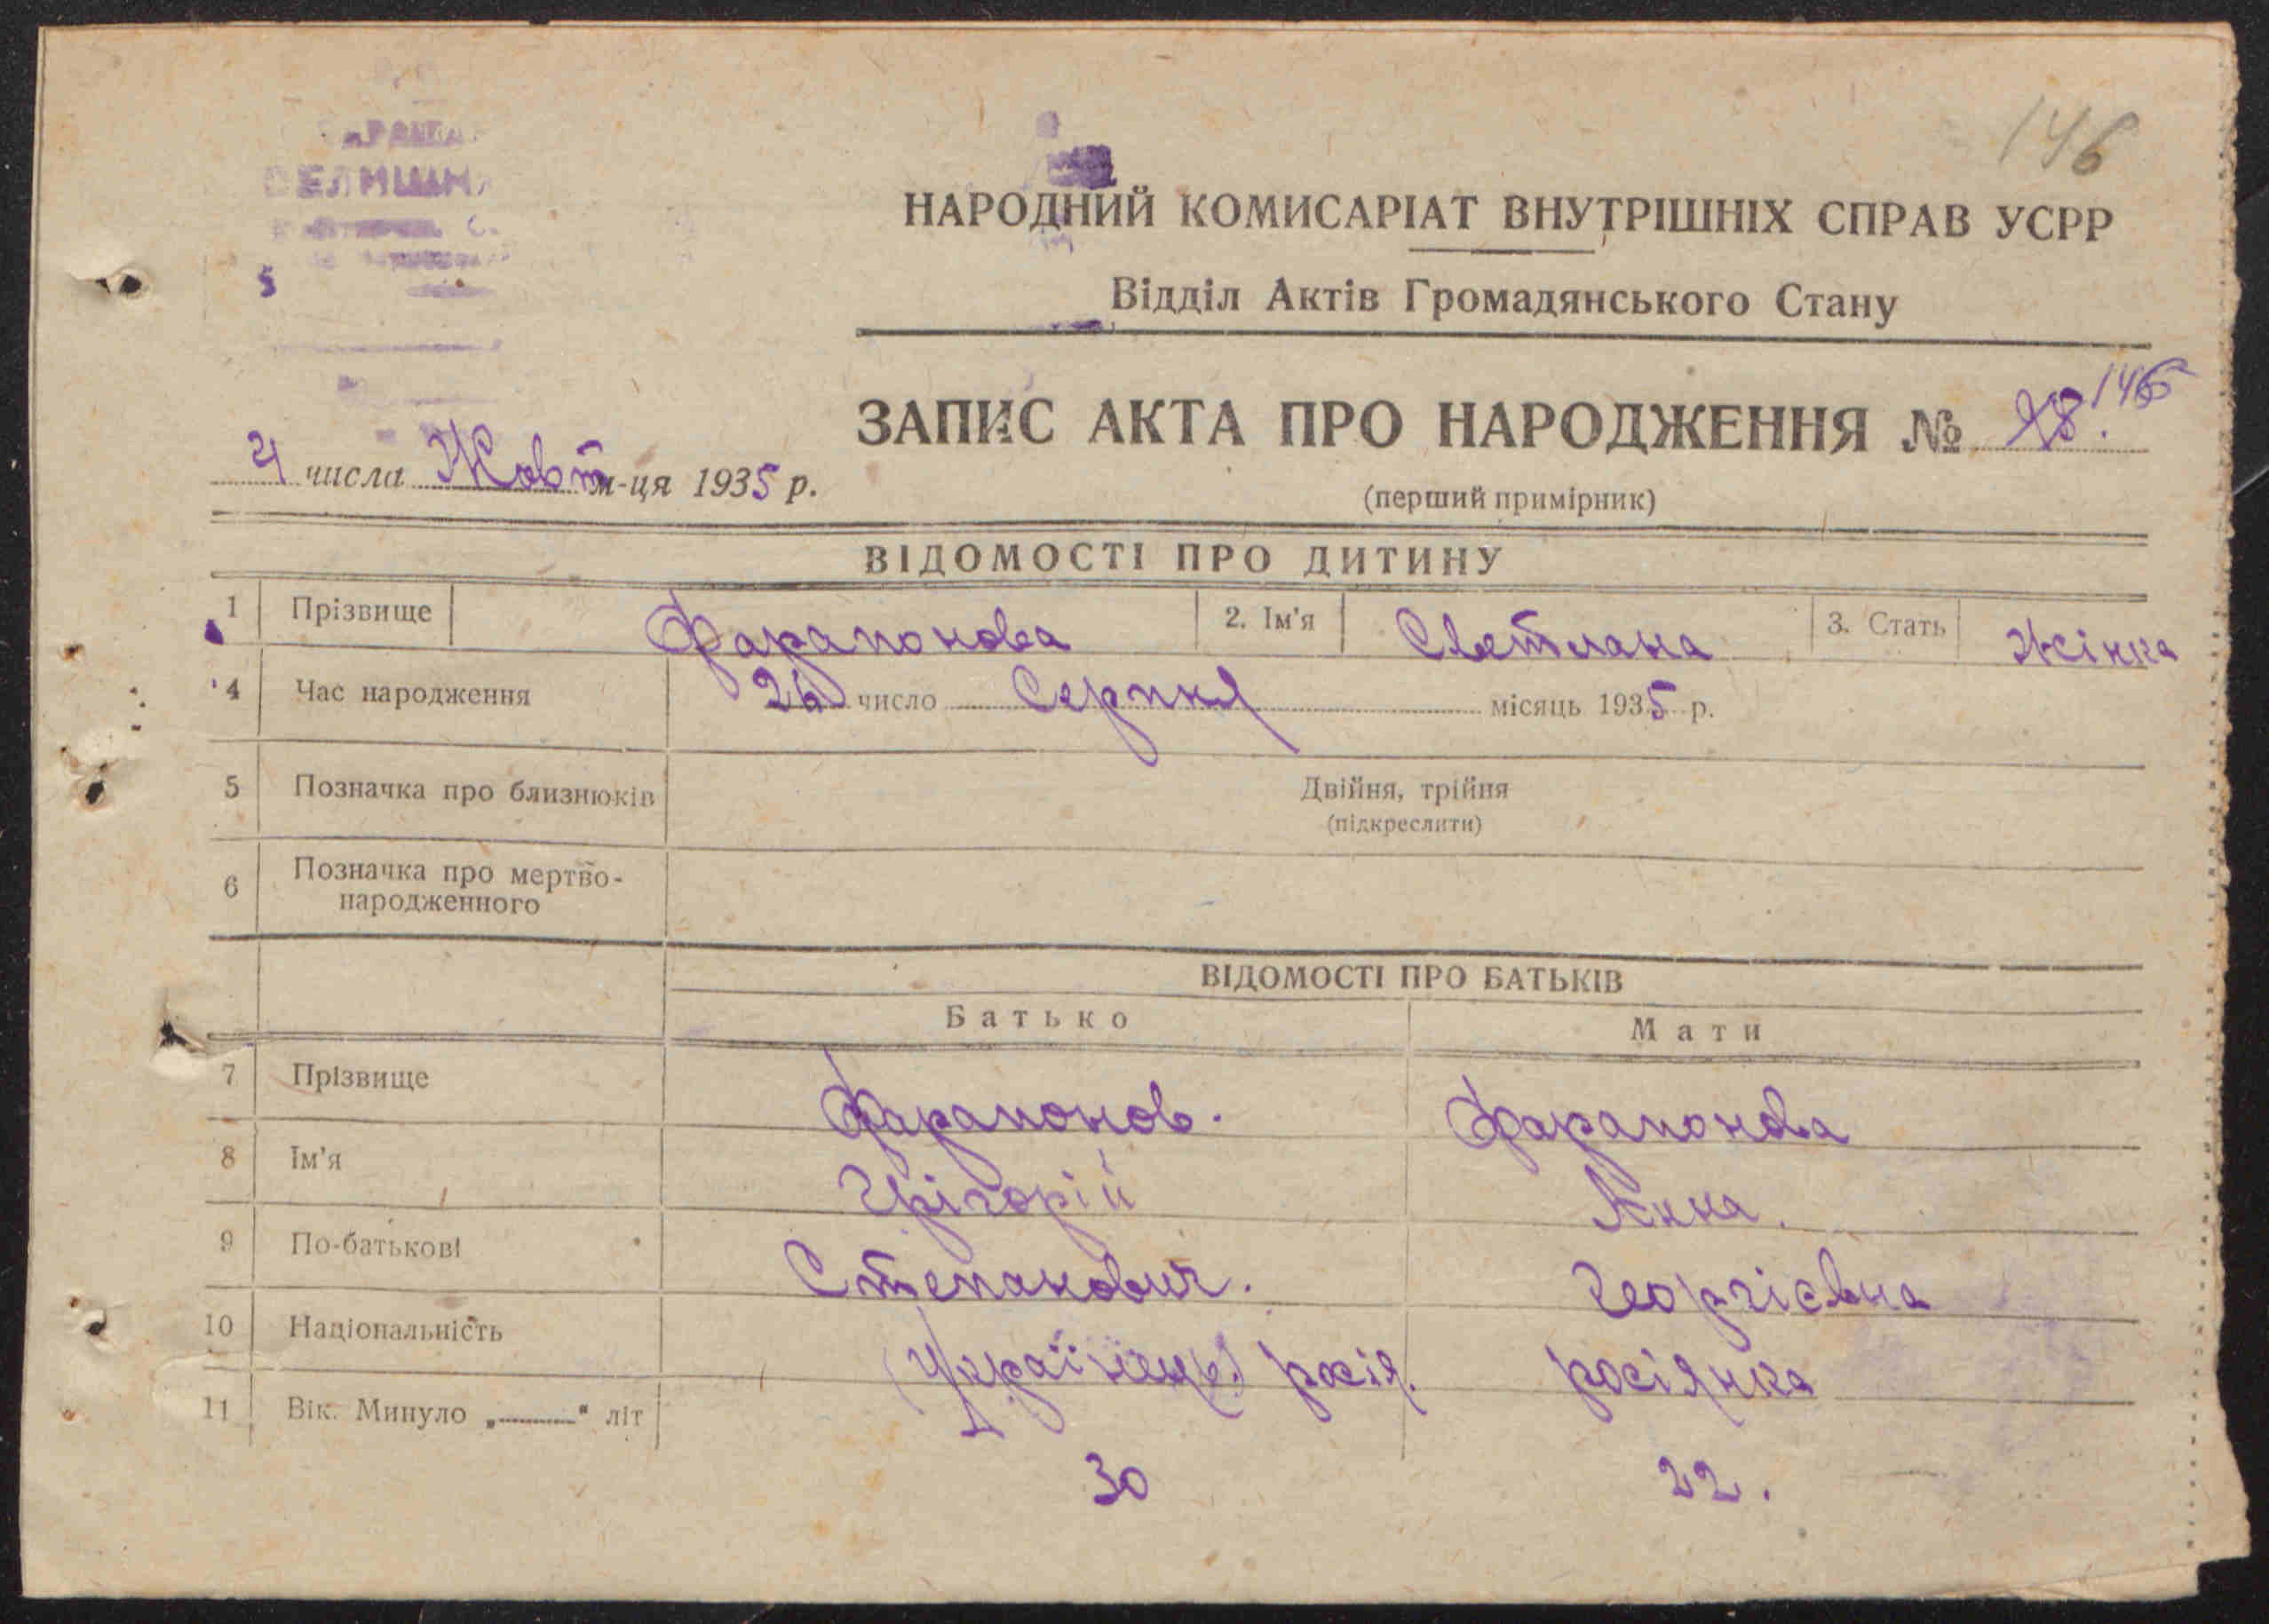 146
НАРОДНИЙ КОМИСАРІАТ ВНУТРІШНІХ СПРАВ УСРР
Відділ Актів Громадянського Стану
ЗАПИС АКТА ПРО НАРОДЖЕННЯ № 98. 146
4 числа Жовт м-ця 1935 р.
(перший примірник)
ВІДОМОСТІ ПРО ДИТИНУ
1 Прізвище Фарапонова 2. Ім'я Светлана 3. Стать Жінка
4 Час народження 26 число Серпня місяць 1935 р.
5 Позначка про близнюків Двійня, трійня
(підкреслити)
6 Позначка про мертво-
народженного
ВІДОМОСТІ ПРО БАТЬКІВ
Батько Мати
7 Прізвище Фарапонов. Фарапонова
8 Ім'я Грігорій Анна.
9 По-батькові Степанович. Георгієвна
10 Національність (українець) росія. росіянка
11 Вік. Минуло „ " літ
30 22.